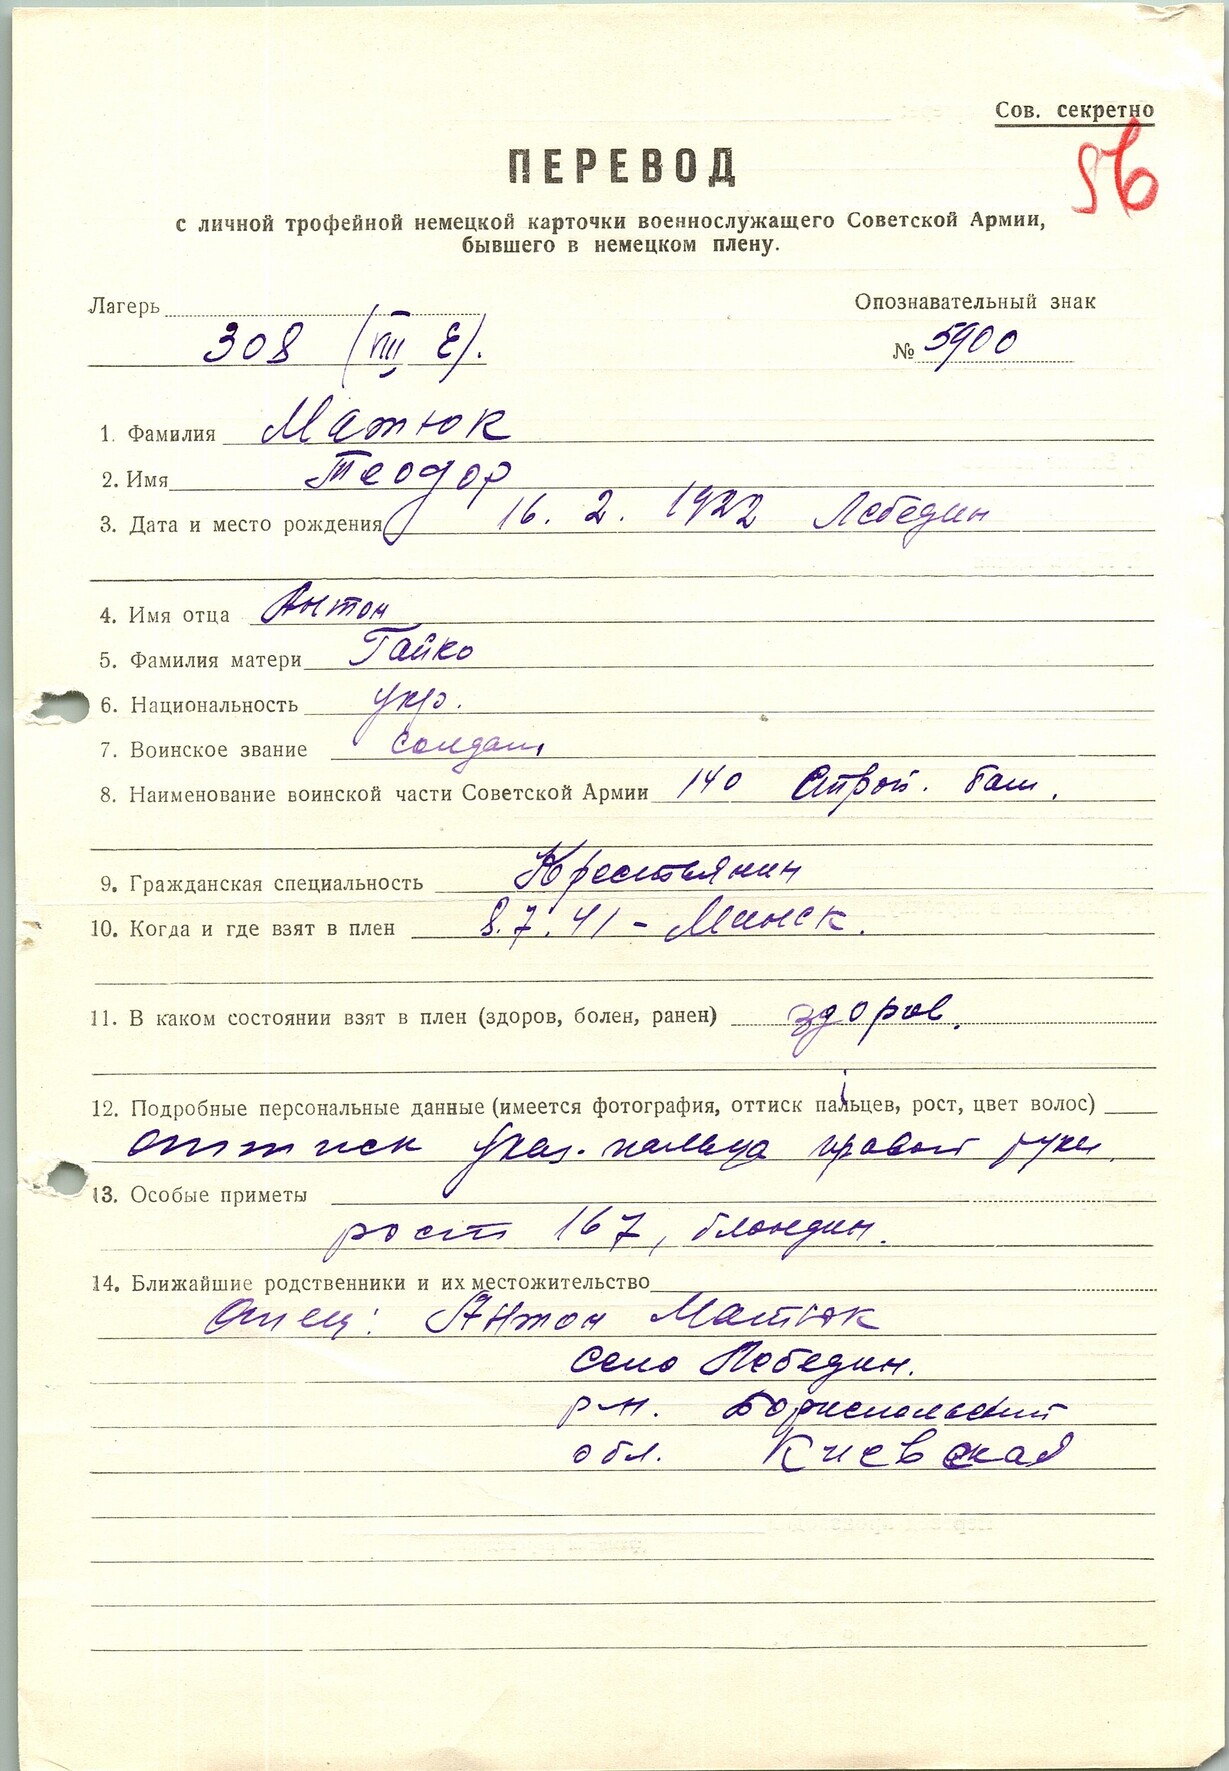 Сов. секретно
56
ПЕРЕВОД
с личной трофейной немецкой карточки военнослужащего Советской Армии,
бывшего в немецком плену.
Лагерь
Опознавательный знак
308 (VIII E).
№ 5900
1. Фамилия Матюк
2. Имя Теодор
3. Дата и место рождения 16. 2. 1922 Лебедин
4. Имя отца Антон
5. Фамилия матери Гайко
6. Национальность укр.
7. Воинское звание солдат
8. Наименование воинской части Советской Армии 140 Строй. бат.
9. Гражданская специальность Крестьянин
10. Когда и где взят в плен 8.7.41 - Минск.
11. В каком состоянии взят в плен (здоров, болен, ранен) здоров.
12. Подробные персональные данные (имеется фотография, оттиск пальцев, рост, цвет волос)
оттиск указ. пальца правой руки.
13. Особые приметы
рост 167, блондин.
14. Ближайшие родственники и их местожительство
Отец: Антон Матюк
село Лебедин.
р-н. Бориспольский
обл. Киевская